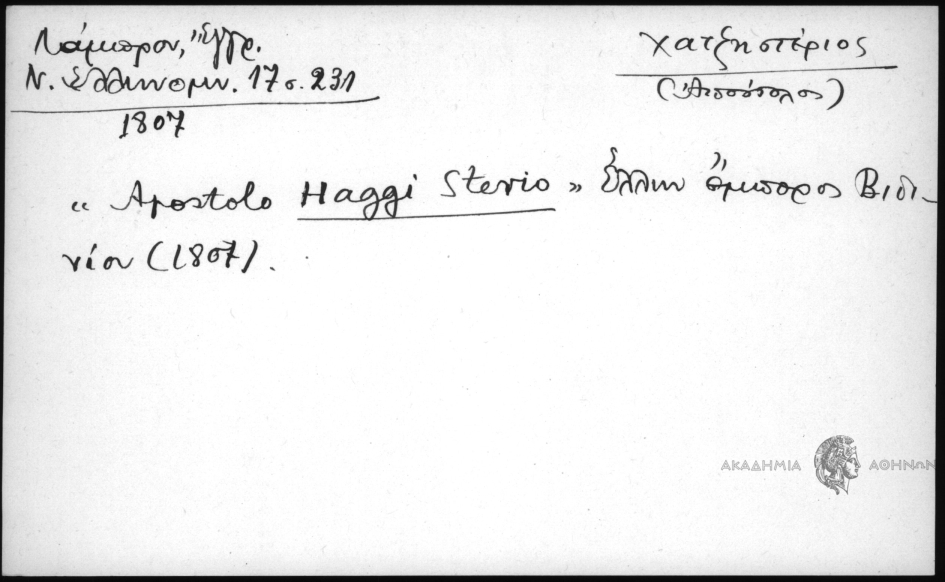 Λάμπρου, Ἔγγρ.
Ν. Ἑλληνομν. 17 σ. 231
1807
Χατζηστέριος
(Ἀπόστολος)
« Apostolo Haggi Sterio » Ἕλλην ἔμπορος Βιδι-
νίου (1807).
ΑΚΑΔΗΜΙΑ ΑΘΗΝΩΝ